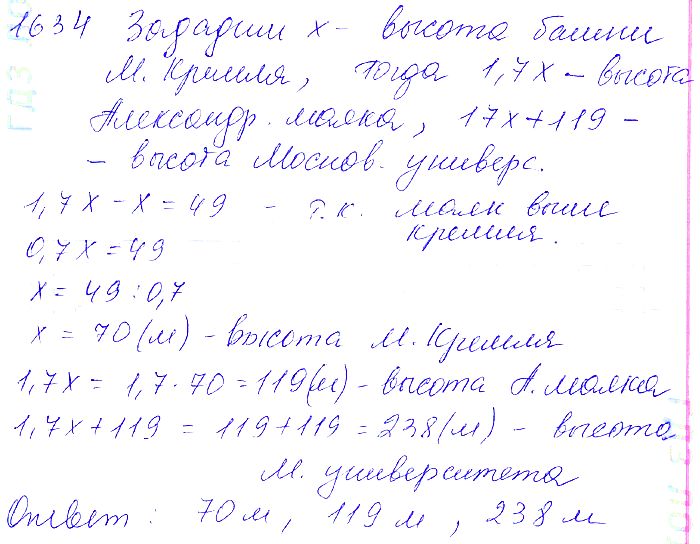 1634 Зададим х - высота башни
М. Кремля, тогда 1,7х - высота
Александр. маяка, 17х+119 -
- высота Москов. универс.
1,7х - х = 49 - т.к. маяк выше
кремля.
0,7х = 49
х = 49 : 0,7
х = 70 (м) - высота М. Кремля
1,7х = 1,7 · 70 = 119 (м) - высота А. маяка
1,7х + 119 = 119 + 119 = 238 (м) - высота
М. университета
Ответ : 70 м, 119 м, 238 м
ГДЗ